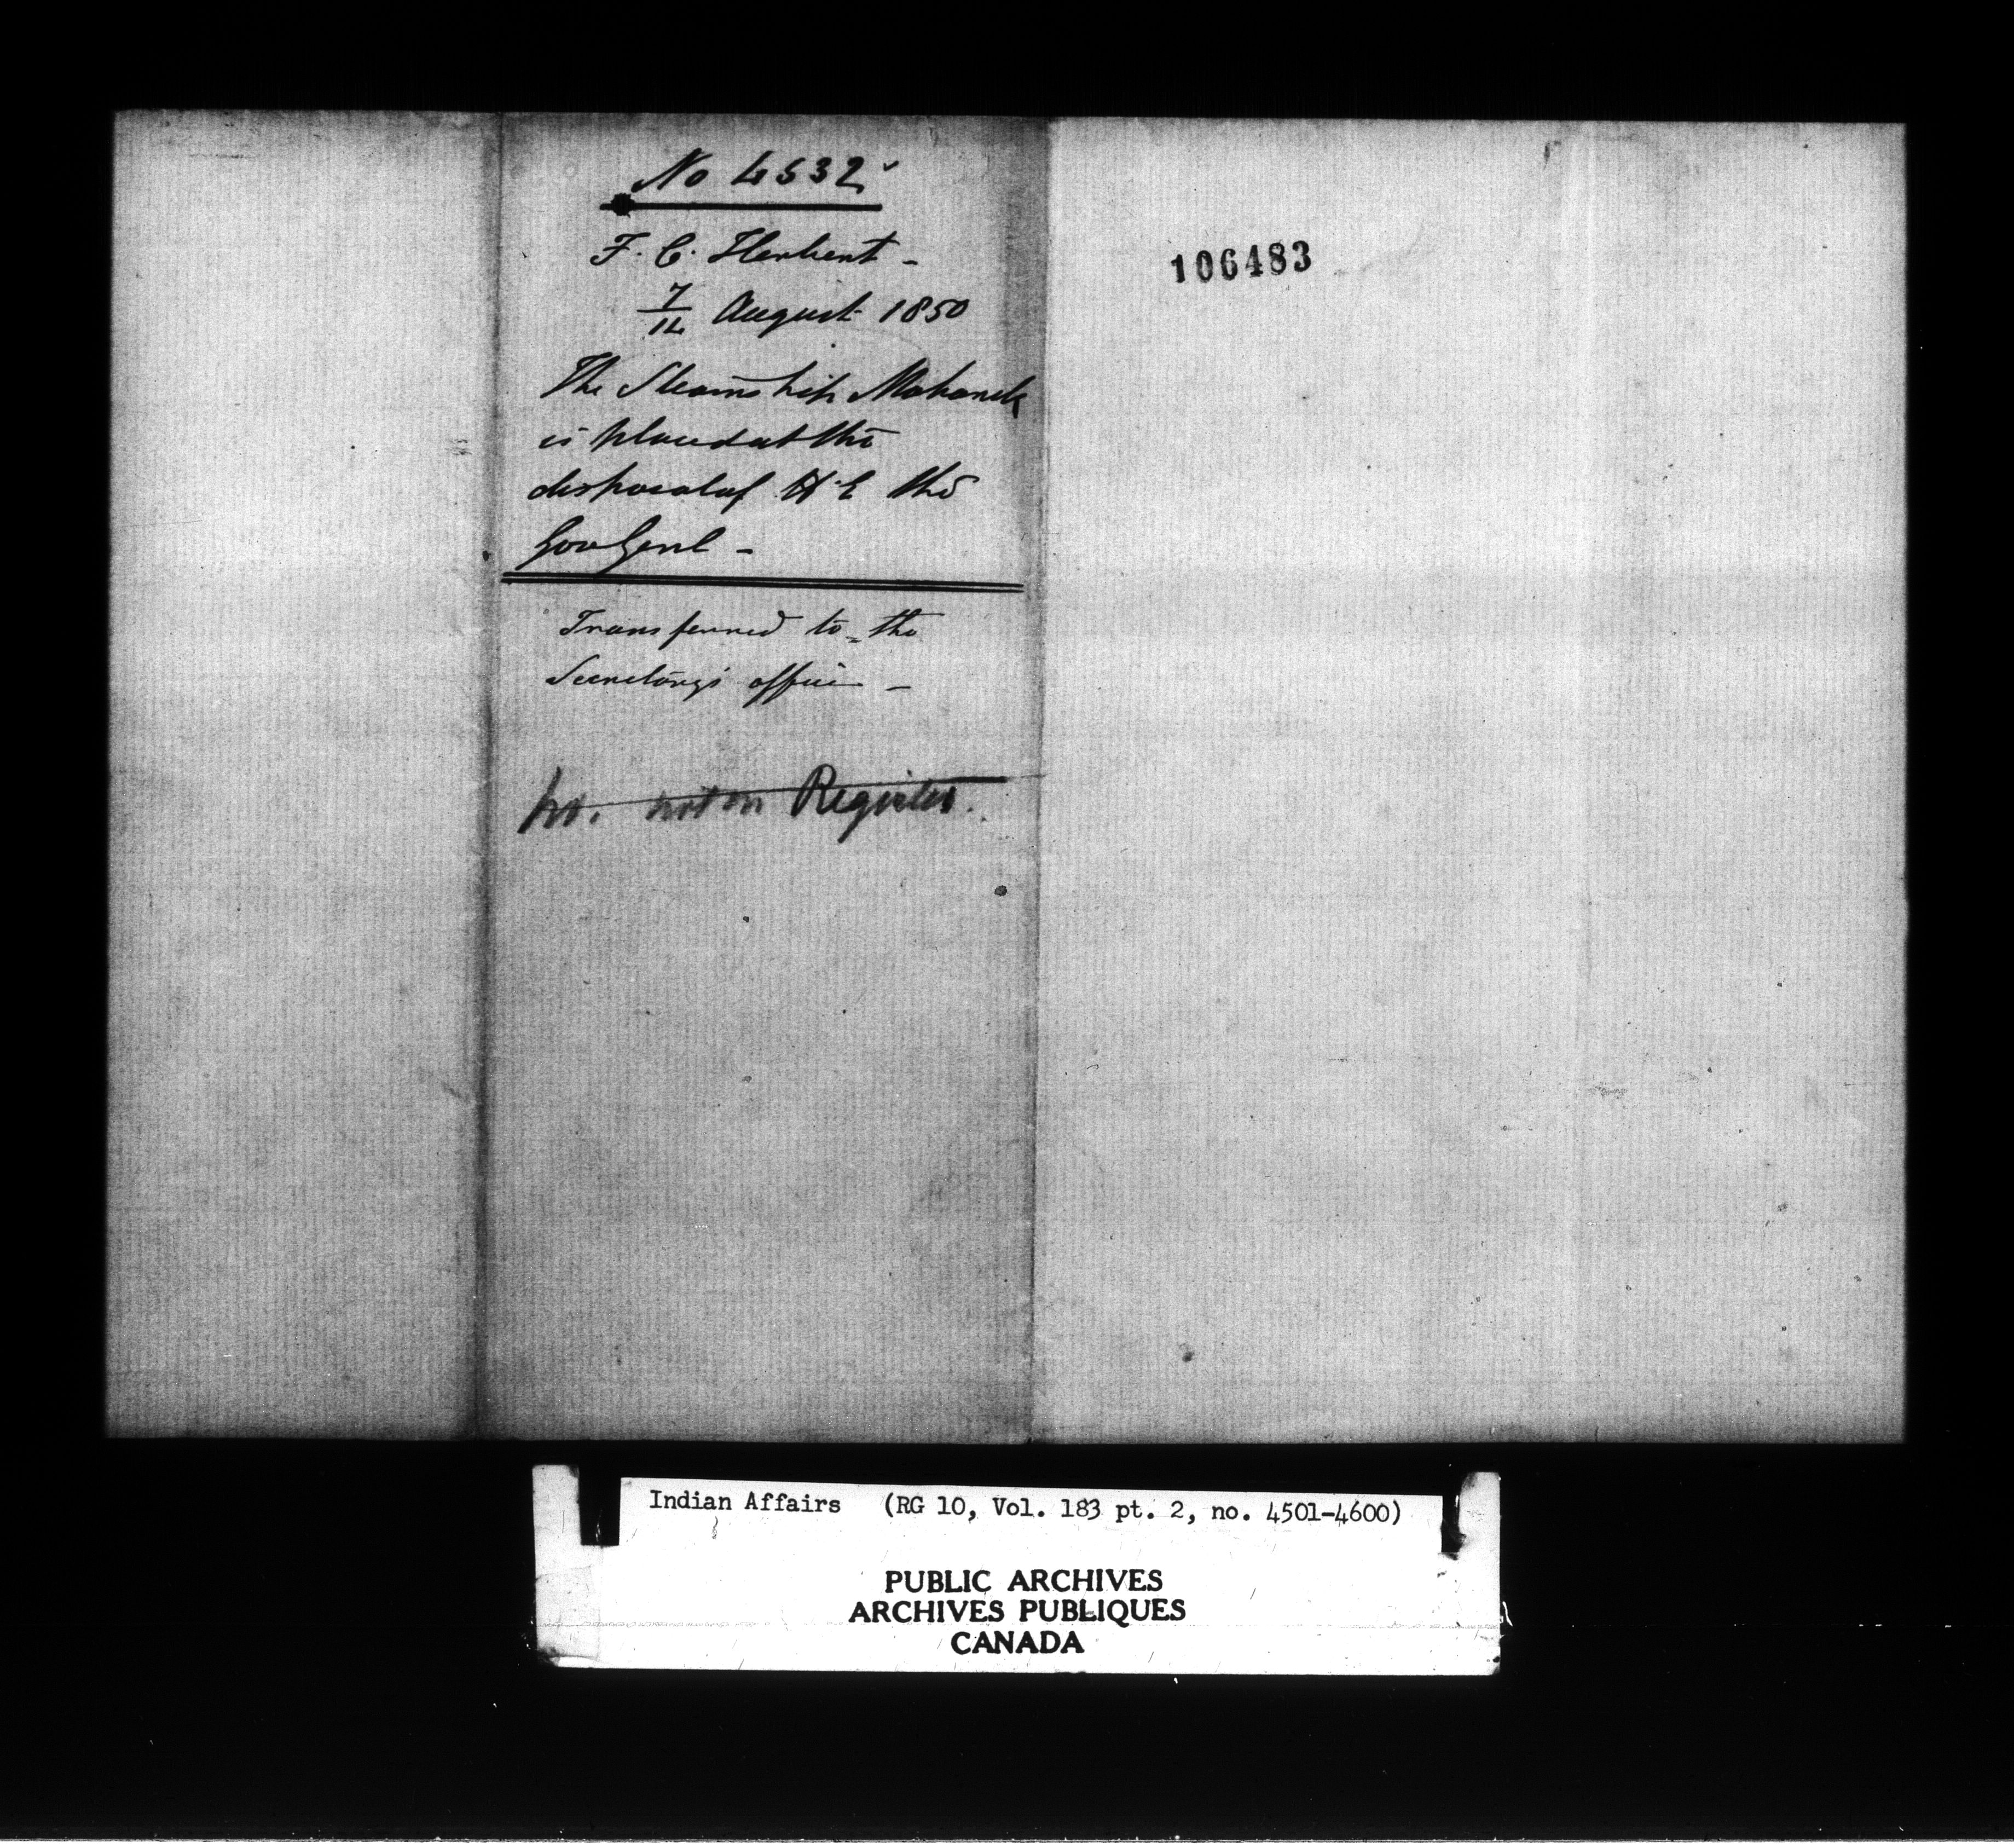 No 4532
F. C. Herbert -
7/14 August 1850
The Steamship Mohawk
is placed at the
disposal of H. E the
Gov Genl -
Transferred to the
Secretary's office -
No. not on Register.
106483
Indian Affairs (RG 10, Vol. 183 pt. 2, no. 4501-4600)
PUBLIC ARCHIVES
ARCHIVES PUBLIQUES
CANADA